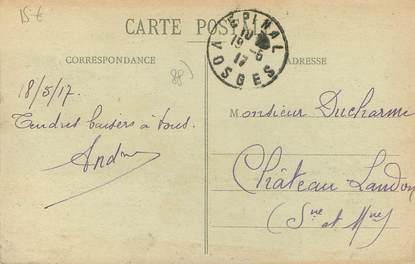 15€
CARTE POSTALE
CORRESPONDANCE
ADRESSE
EPINAL
19-5
17
VOSGES
88)
18/5/17.
Tendres baisers à tous.
André
Monsieur Ducharme
Château Landon
(Sne et Mne)